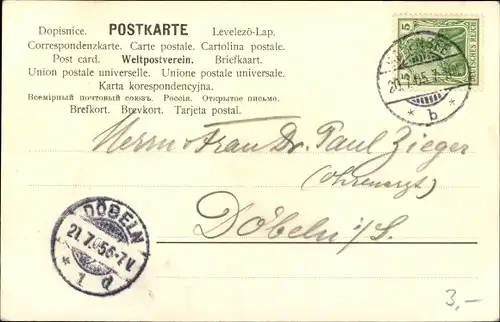 Dopisnice. POSTKARTE Levelező-Lap.
Correspondenzkarte. Carte postale. Cartolina postale.
Post card. Weltpostverein. Briefkaart.
Union postale universelle. Unione postale universale.
Karta korespondencyjna.
Всемірный почтовый союзъ. Россія. Открытое письмо.
Brefkort. Brevkort. Tarjeta postal.
5 5
DEUTSCHES REICH
20.7.05.7
* b *
Herrn + Frau Dr. Paul Zieger
(Ohrenarzt)
Döbeln i/S.
DÖBELN
21.7.05 6-7V.
* 1 d
3,-